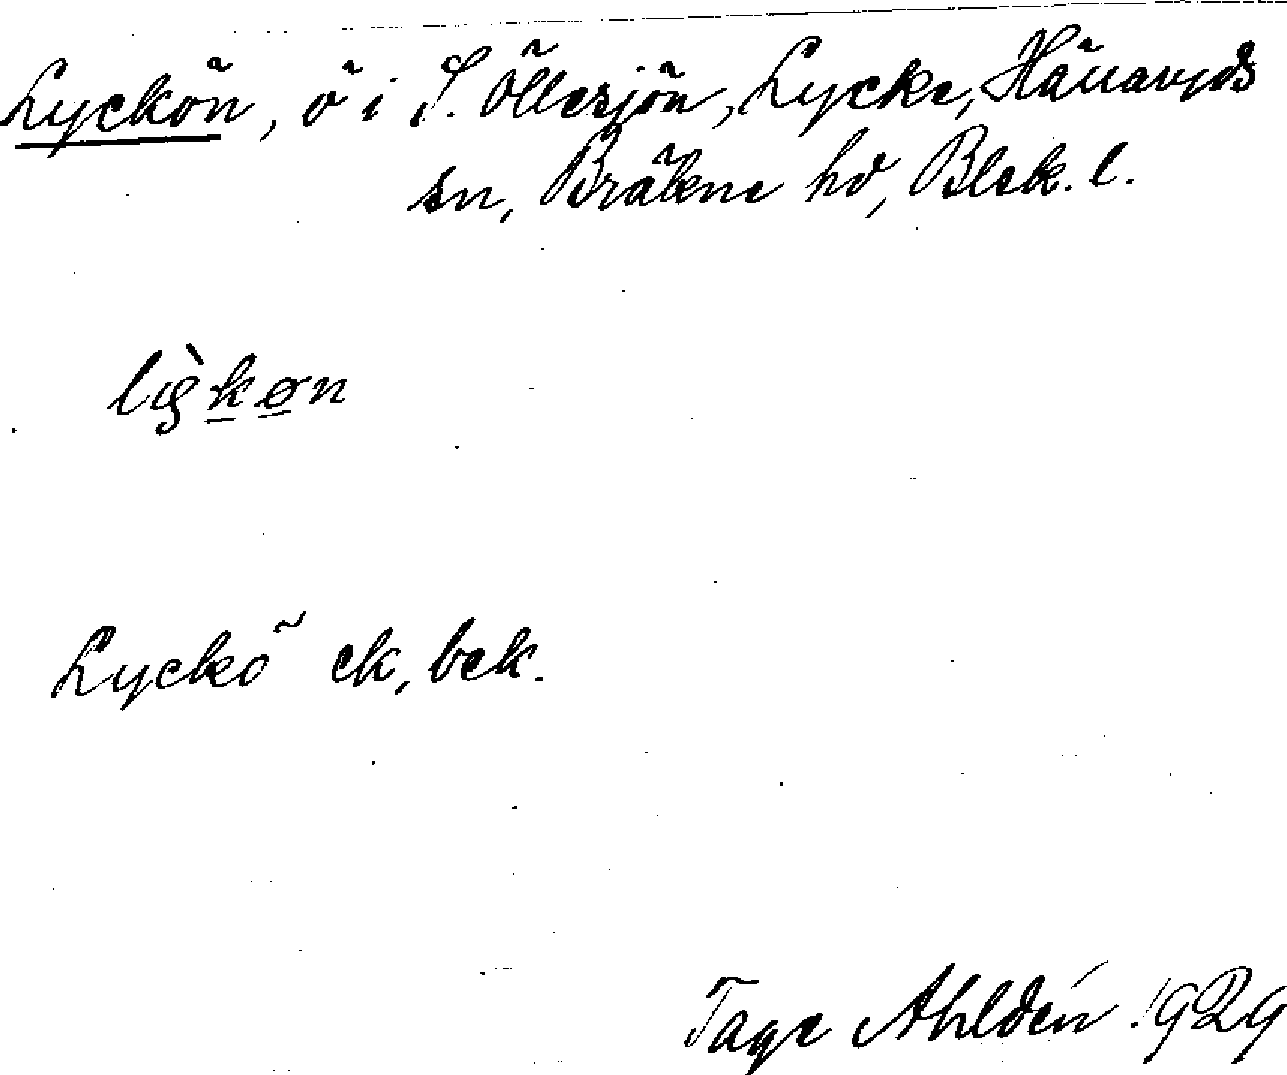 Lyckön, ö i S. Öllesjön, Lycke, Hällaryds
sn, Bräkne hd, Blek. l.
Lyckö ek, bek.
Tage Ahldén 1929